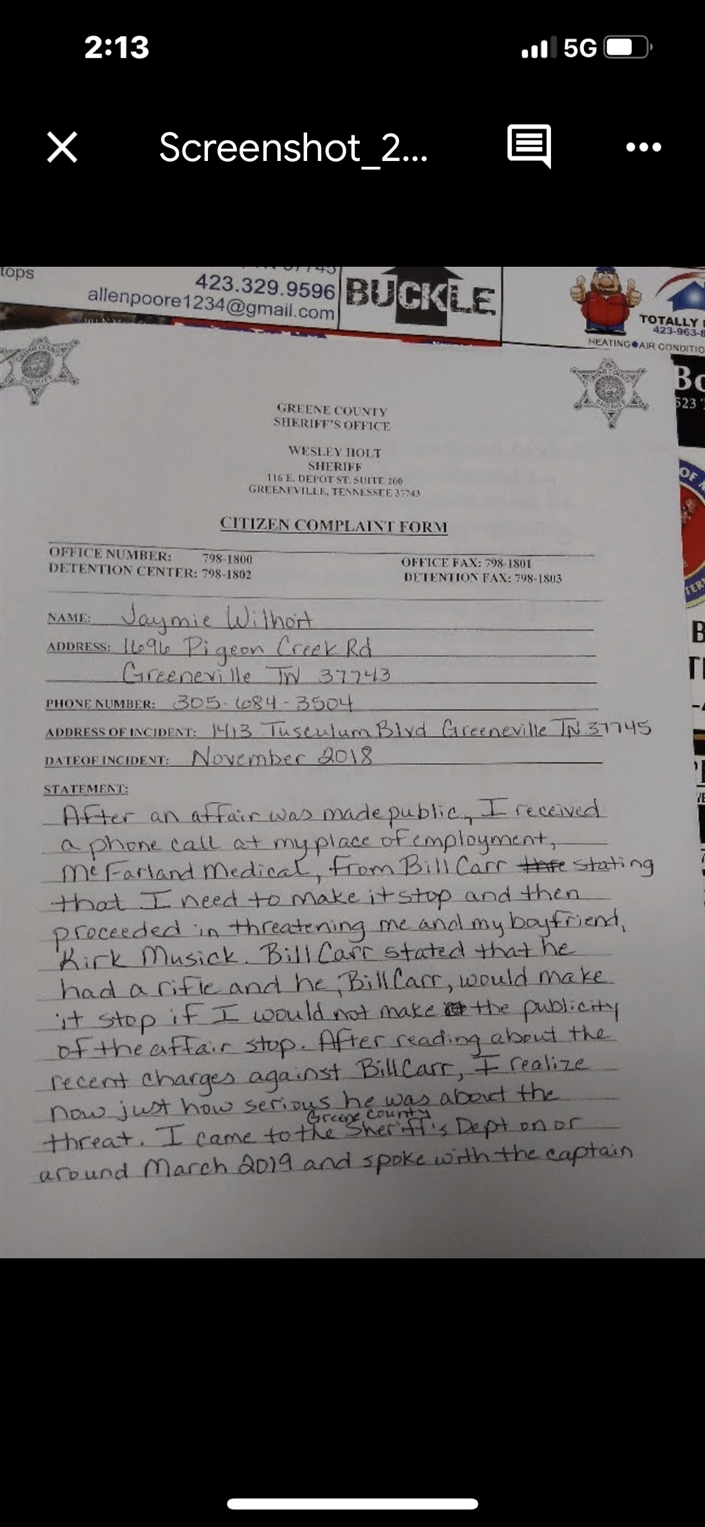 2:13
5G
Screenshot_2...
tops
423.329.9596
allenpoore1234@gmail.com
BUCKLE
TOTALLY
423-963-8
HEATING AIR CONDITIO
GREENE COUNTY
SHERIFF'S OFFICE
WESLEY HOLT
SHERIFF
116 E. DEPOT ST. SUITE 200
GREENEVILLE, TENNESSEE 37743
CITIZEN COMPLAINT FORM
OFFICE NUMBER: 798-1800
OFFICE FAX: 798-1801
DETENTION CENTER: 798-1802
DETENTION FAX: 798-1803
NAME: Jaymie Wilhoit
ADDRESS: 1696 Pigeon Creek Rd
Greeneville TN 37743
PHONE NUMBER: 305-684-3504
ADDRESS OF INCIDENT: 1413 Tusculum Blvd Greeneville TN 37745
DATE OF INCIDENT: November 2018
STATEMENT:
After an affair was made public, I received
a phone call at my place of employment,
McFarland Medical, from Bill Carr stating
that I need to make it stop and then
proceeded in threatening me and my boyfriend,
Kirk Musick. Bill Carr stated that he
had a rifle and he, Bill Carr, would make
it stop if I would not make the publicity
of the affair stop. After reading about the
recent charges against Bill Carr, I realize
now just how serious he was about the
threat. I came to the Greene County Sheriff's Dept on or
around March 2019 and spoke with the captain